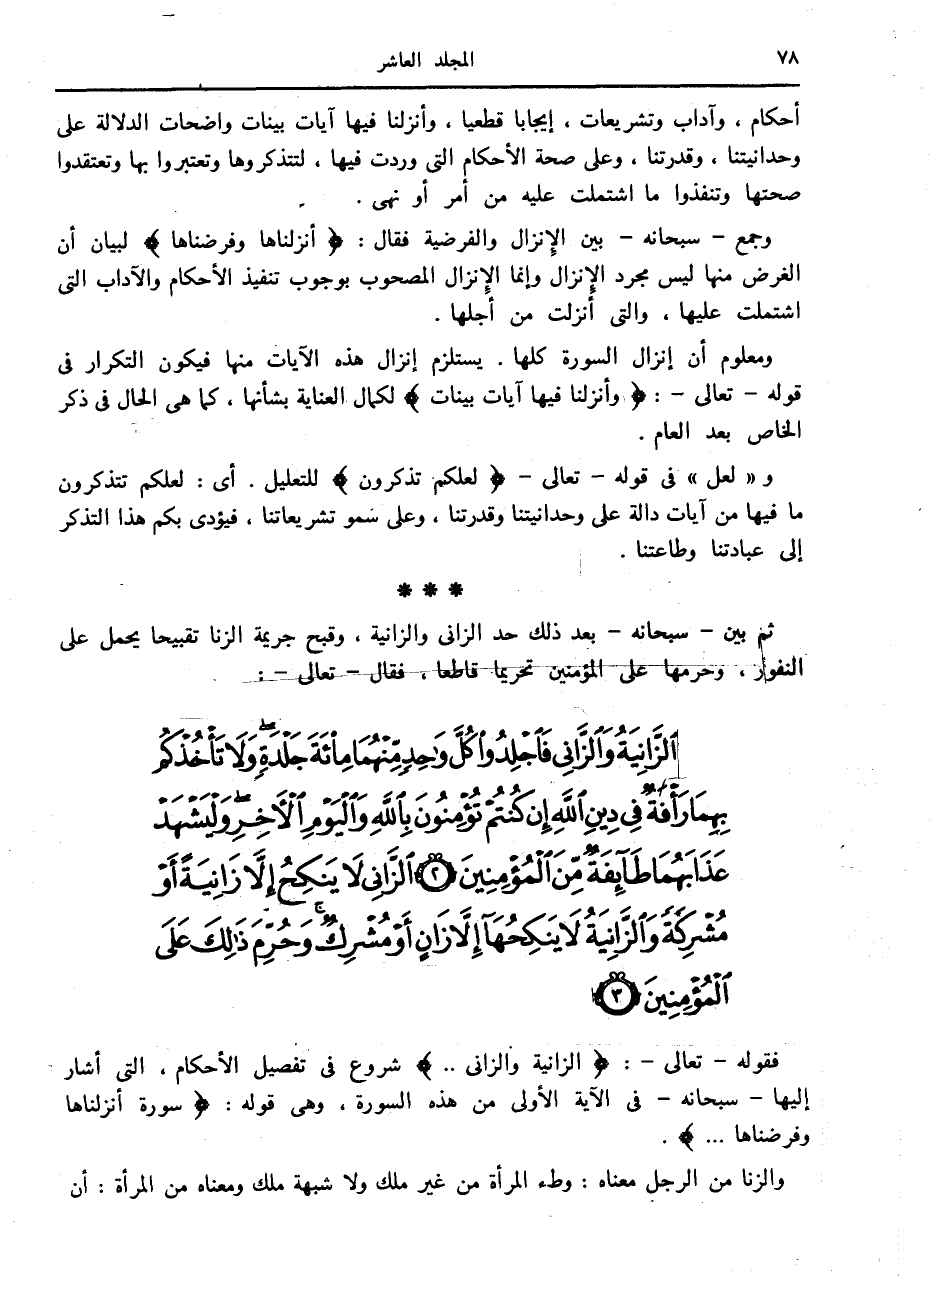 ٧٨
المجلد العاشر
أحكام ، وآداب وتشريعات ، إيجابا قطعيا ، وأنزلنا فيها آيات بينات واضحات الدلالة على
وحدانيتنا ، وقدرتنا ، وعلى صحة الأحكام التى وردت فيها ، لتتذكروها وتعتبروا بها وتعتقدوا
صحتها وتنفذوا ما اشتملت عليه من أمر أو نهى .
وجمع – سبحانه – بين الإنزال والفرضية فقال : ﴿ أنزلناها وفرضناها ﴾ لبيان أن
الغرض منها ليس مجرد الإنزال وإنما الإنزال المصحوب بوجوب تنفيذ الأحكام والآداب التى
اشتملت عليها ، والتى أنزلت من أجلها .
ومعلوم أن إنزال السورة كلها . يستلزم إنزال هذه الآيات منها فيكون التكرار فى
قوله – تعالى – : ﴿ وأنزلنا فيها آيات بينات ﴾ لكمال العناية بشأنها ، كما هى الحال فى ذكر
الخاص بعد العام .
و « لعل » فى قوله – تعالى – ﴿ لعلكم تذكرون ﴾ للتعليل . أى : لعلكم تتذكرون
ما فيها من آيات دالة على وحدانيتنا وقدرتنا ، وعلى سمو تشريعاتنا ، فيؤدى بكم هذا التذكر
إلى عبادتنا وطاعتنا .
* * *
ثم بين – سبحانه – بعد ذلك حد الزانى والزانية ، وقبح جريمة الزنا تقبيحا يحمل على
النفور ، وحرمها على المؤمنين تحريما قاطعا ، فقال – تعالى – :
ٱلزَّانِيَةُ وَٱلزَّانِى فَٱجْلِدُوا۟ كُلَّ وَٰحِدٍ مِّنْهُمَا مِا۟ئَةَ جَلْدَةٍ ۖ وَلَا تَأْخُذْكُم
بِهِمَا رَأْفَةٌ فِى دِينِ ٱللَّهِ إِن كُنتُمْ تُؤْمِنُونَ بِٱللَّهِ وَٱلْيَوْمِ ٱلْأَخِرِ ۖ وَلْيَشْهَدْ
عَذَابَهُمَا طَآئِفَةٌ مِّنَ ٱلْمُؤْمِنِينَ ۝٢ ٱلزَّانِى لَا يَنكِحُ إِلَّا زَانِيَةً أَوْ
مُشْرِكَةً وَٱلزَّانِيَةُ لَا يَنكِحُهَآ إِلَّا زَانٍ أَوْ مُشْرِكٌ ۚ وَحُرِّمَ ذَٰلِكَ عَلَى
ٱلْمُؤْمِنِينَ ۝٣
فقوله – تعالى – : ﴿ الزانية والزانى .. ﴾ شروع فى تفصيل الأحكام ، التى أشار
إليها – سبحانه – فى الآية الأولى من هذه السورة ، وهى قوله : ﴿ سورة أنزلناها
وفرضناها ... ﴾ .
والزنا من الرجل معناه : وطء المرأة من غير ملك ولا شبهة ملك ومعناه من المرأة : أن